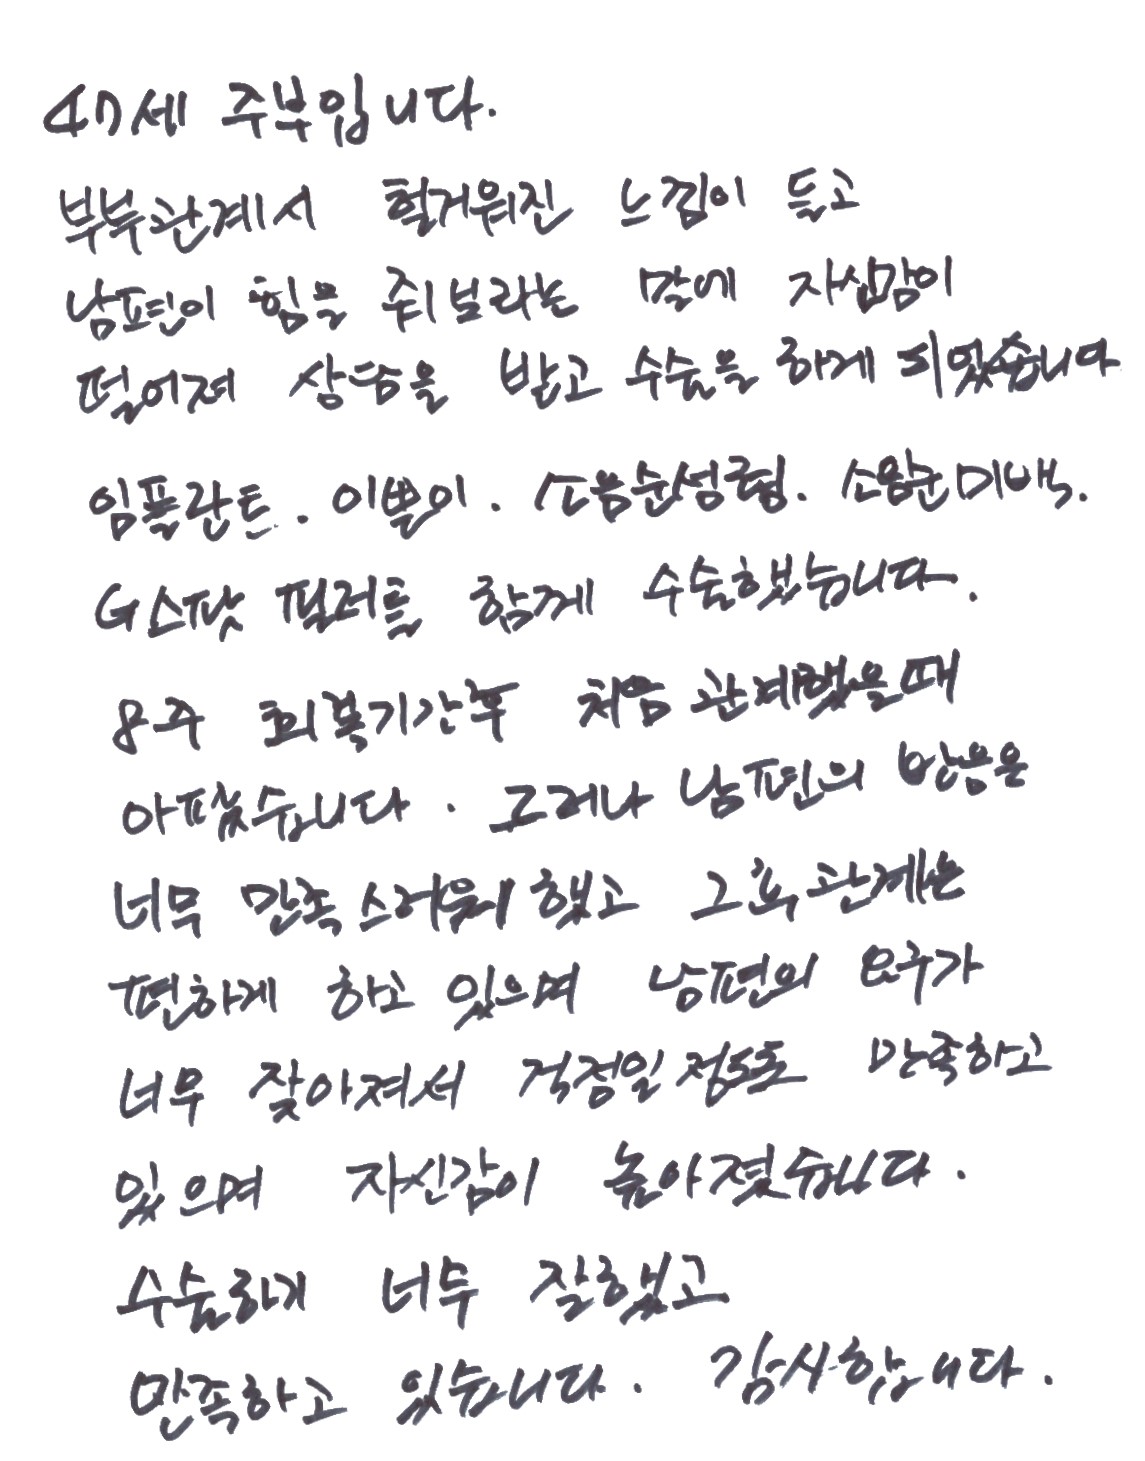 47세 주부입니다.
부부관계시 헐거워진 느낌이 들고
남편이 힘을 줘보라는 말에 자신감이
떨어져 상담을 받고 수술을 하게 되었습니다
임플란트. 이쁜이. 소음순성형. 소음순미백.
G스팟 필러를 함께 수술했습니다.
8주 회복기간후 처음 관계했을때
아팠습니다. 그러나 남편의 반응은
너무 만족스러워 했고 그후 관계는
편하게 하고 있으며 남편의 요구가
너무 잦아져서 걱정일 정도로 만족하고
있으며 자신감이 높아졌습니다.
수술하기 너무 잘했고
만족하고 있습니다. 감사합니다.